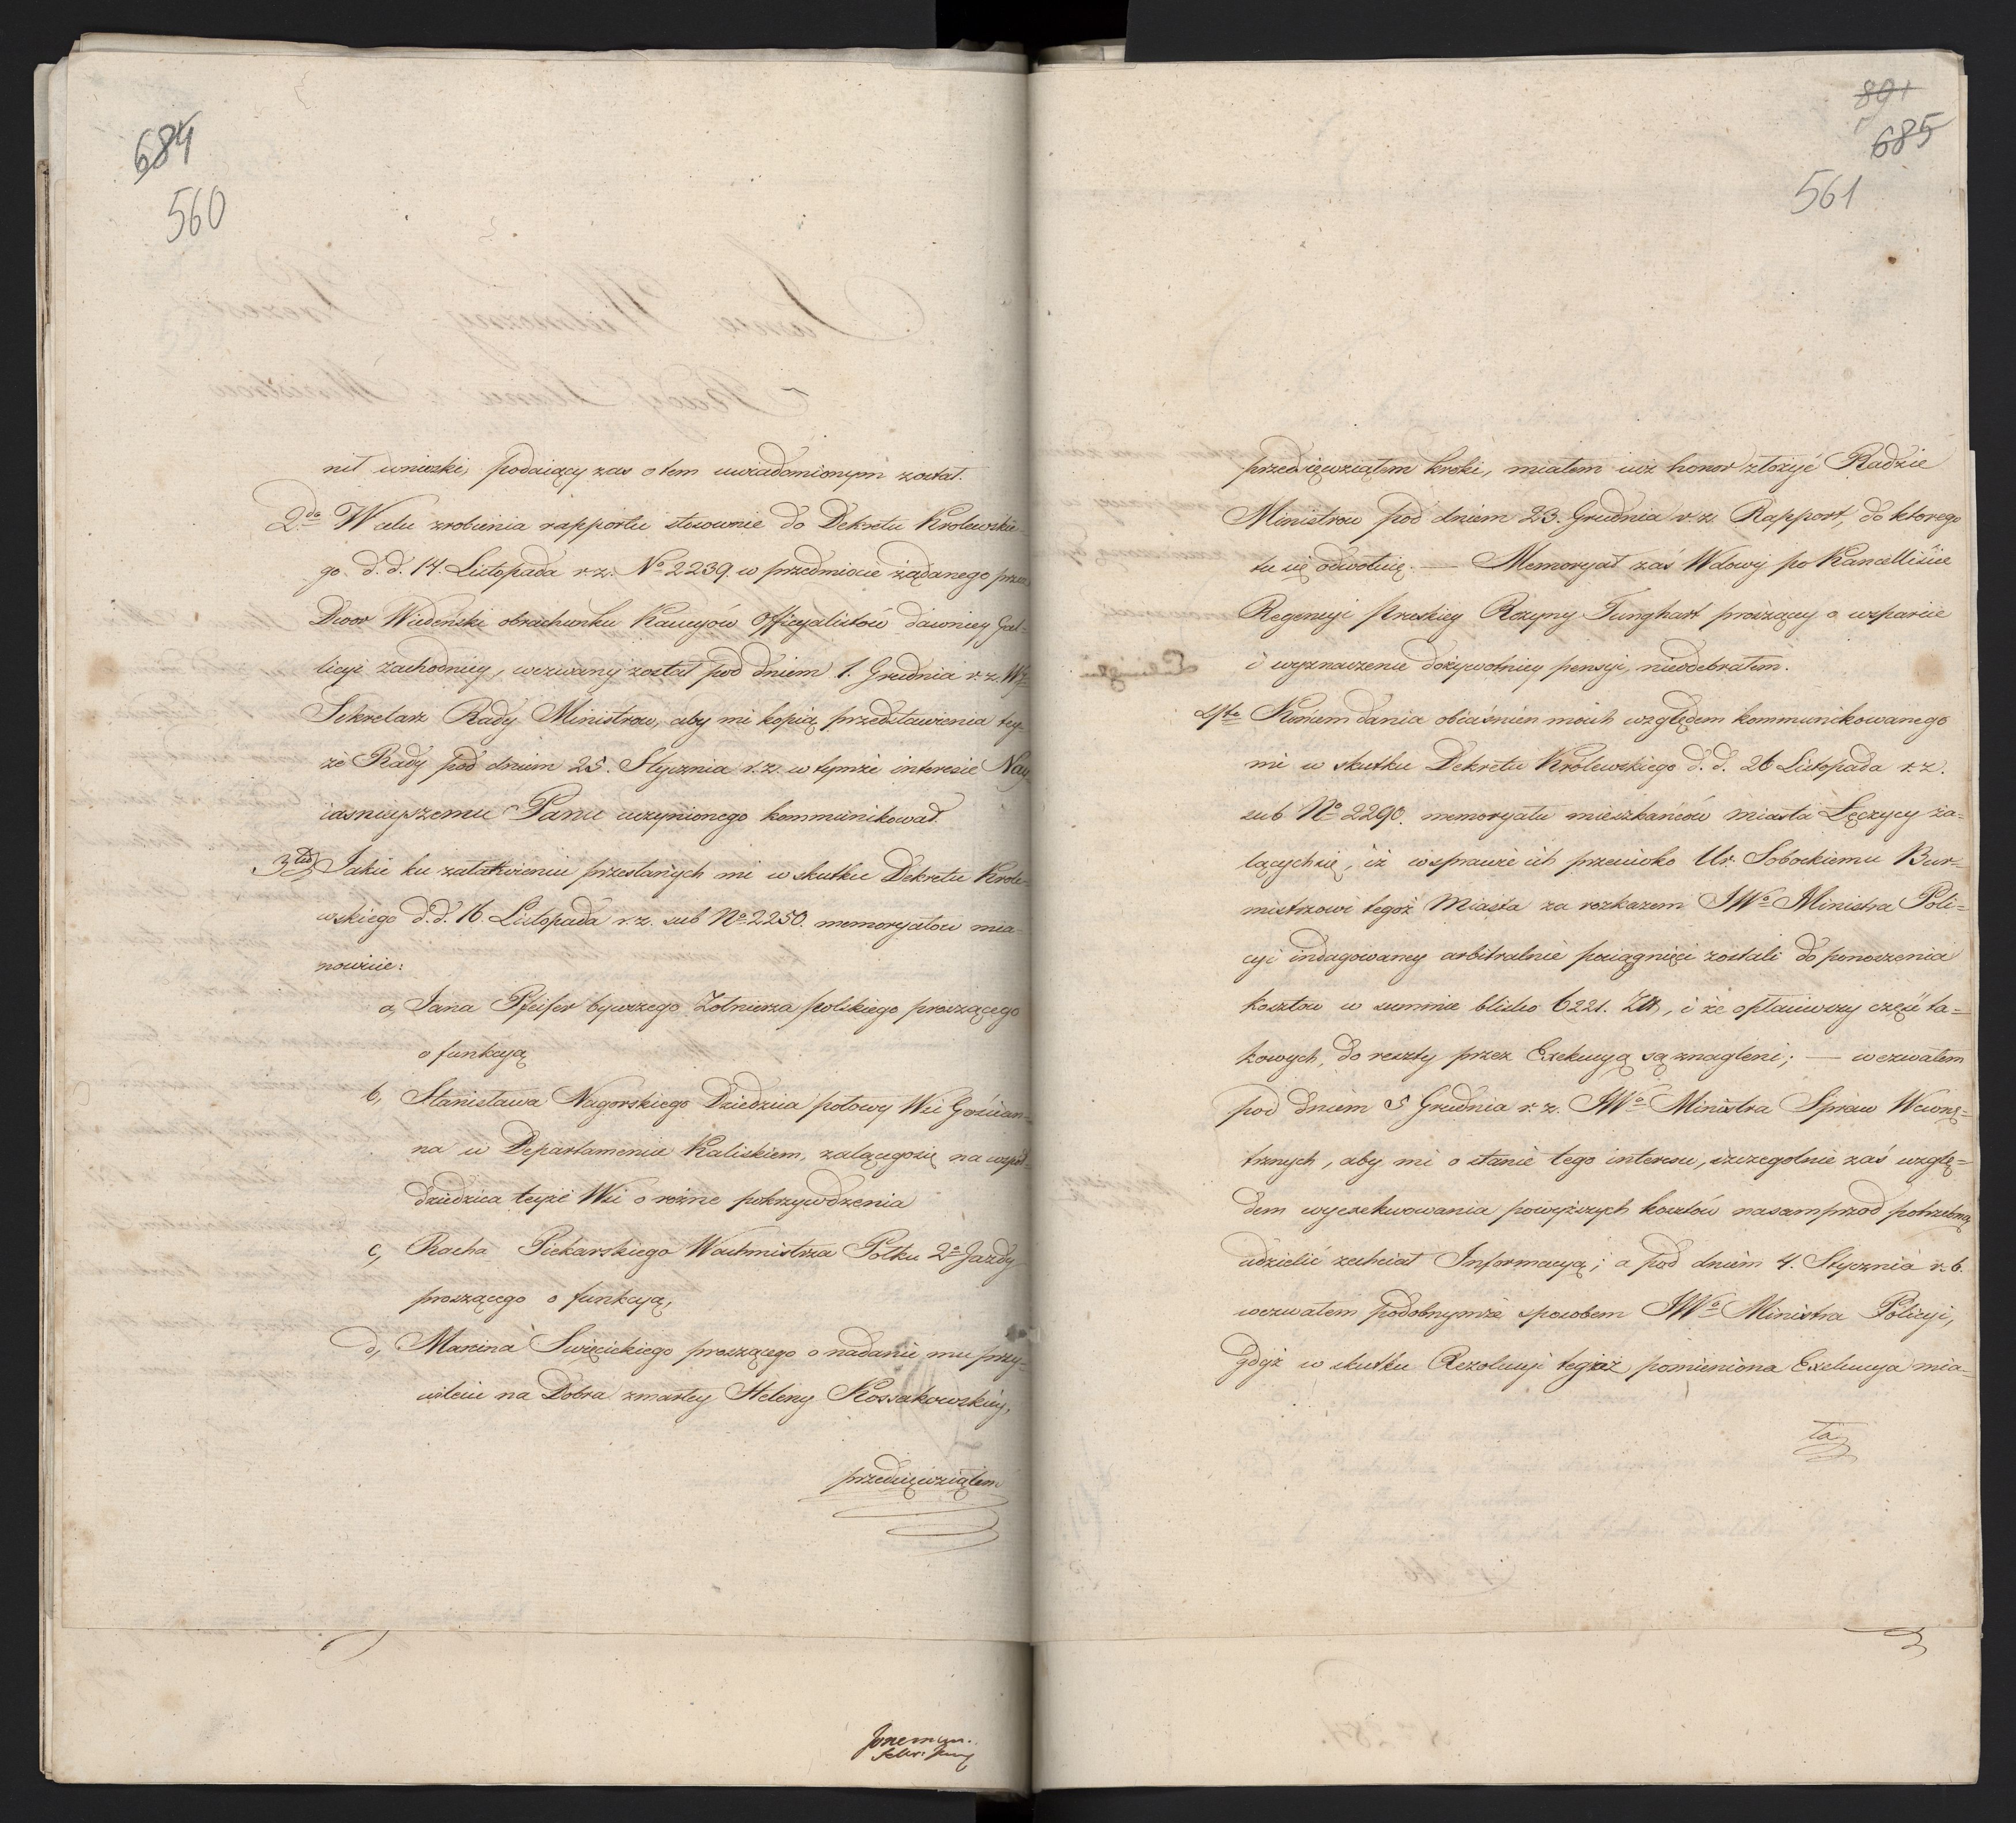 684
560
nił wnioski, podaiący zas o tem uwiadomionym został.
2do W celu zrobienia rapportu stosownie do Dekretu Krolewskie-
go d. d. 14. Listopada r. z. No 2239. w przedmiocie żądanego przez
Dwor Wiedeński obrachunku Kaucyów Officyalistów dawniey Gal-
licyi zachodniey, wezwany został pod dniem 1. Grudnia r. z. WJ
Sekretarz Rady Ministrow, aby mi kopią przedstawienia tey-
że Rady pod dniem 25. Stycznia r. z. w tymże interesie Nay
iasnieyszemu Panu uczynionego kommunikował.
3tio Jakie ku załatwieniu przesłanych mi w skutku Dekretu Krole-
wskiego d. d. 16. Listopada r. z. sub No 2250. memoryałow mia-
nowicie:
a, Jana Pfeifer bywszego Żołnierza polskiego proszącego
o funkcyą
b, Stanisława Nagorskiego Dziedzica połowy Wsi Gościan-
na w Departamencie Kaliskiem, zalącegosię na wspoł-
dziedzica teyże Wsi o rożne pokrzywdzenia
c, Rocha Piekarskiego Wachmistrza Połku 2o Jazdy
proszącego o funkcyą,
d, Marcina Swięcickiego proszącego o nadanie mu przy-
wileiu na Dobra zmarłey Heleny Kossakowskiey,
przedsięwziąłem
801
685
561
przedsięwziąłem kroki, miałem iuż honor złożyć Radzie
Ministrow pod dniem 23. Grudnia r. z. Rapport, do ktorego
tu się odwołuię. — Memoryał zaś Wdowy po Kancelliście
Regencyi Pruskiey Rozyny Junghart proszącey o wsparcie
i wyznaczenie dożywotniey pensyi, nieodebrałem.
4to Koncem dania obiaśnien moich względem kommunikowanego
mi w skutku Dekretu Krôlewskiego d. d. 26 Listopada r. z.
sub No 2290. memoryału mieszkańców miasta Łęczycy ża-
lącychsię, iż w sprawie ich przeciwko Ur. Sobockiemu Bur-
mistrzowi tegoż Miasta za rozkazem JWo Ministra Poli-
cyi indagowaney arbitralnie pociągnięci zostali do ponoszenia
kosztow w summie blisko 6221. Zł, i że opłaciwszy część ta-
kowych, do reszty przez Exekucyą są znagleni; — wezwałem
pod dniem 5 Grudnia r. z. JWo Ministra Spraw Wewnę-
trznych, aby mi o stanie tego interesu, szczegolnie zaś wzglę-
dem wyexekwowania powyższych kosztów nasamprzod potrzebną
udzielić zechciał Informacyą; a pod dniem 4. Stycznia r. b.
wezwałem podobnymże sposobem JWo Ministra Policyi,
gdyż w skutku Rezolucyi tegoż pomieniona Exekucya mia-
ła